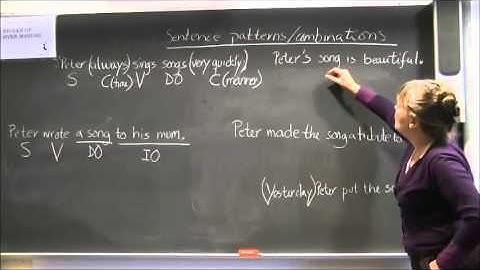 Sentence patterns/combinations
Peter (always) sings songs (very quickly)
S C(time) V DO C(manner)
Peter's song is beautiful.
Peter wrote a song to his mum.
S V DO IO
Peter made the song a tribute to
(Yesterday) Peter put the